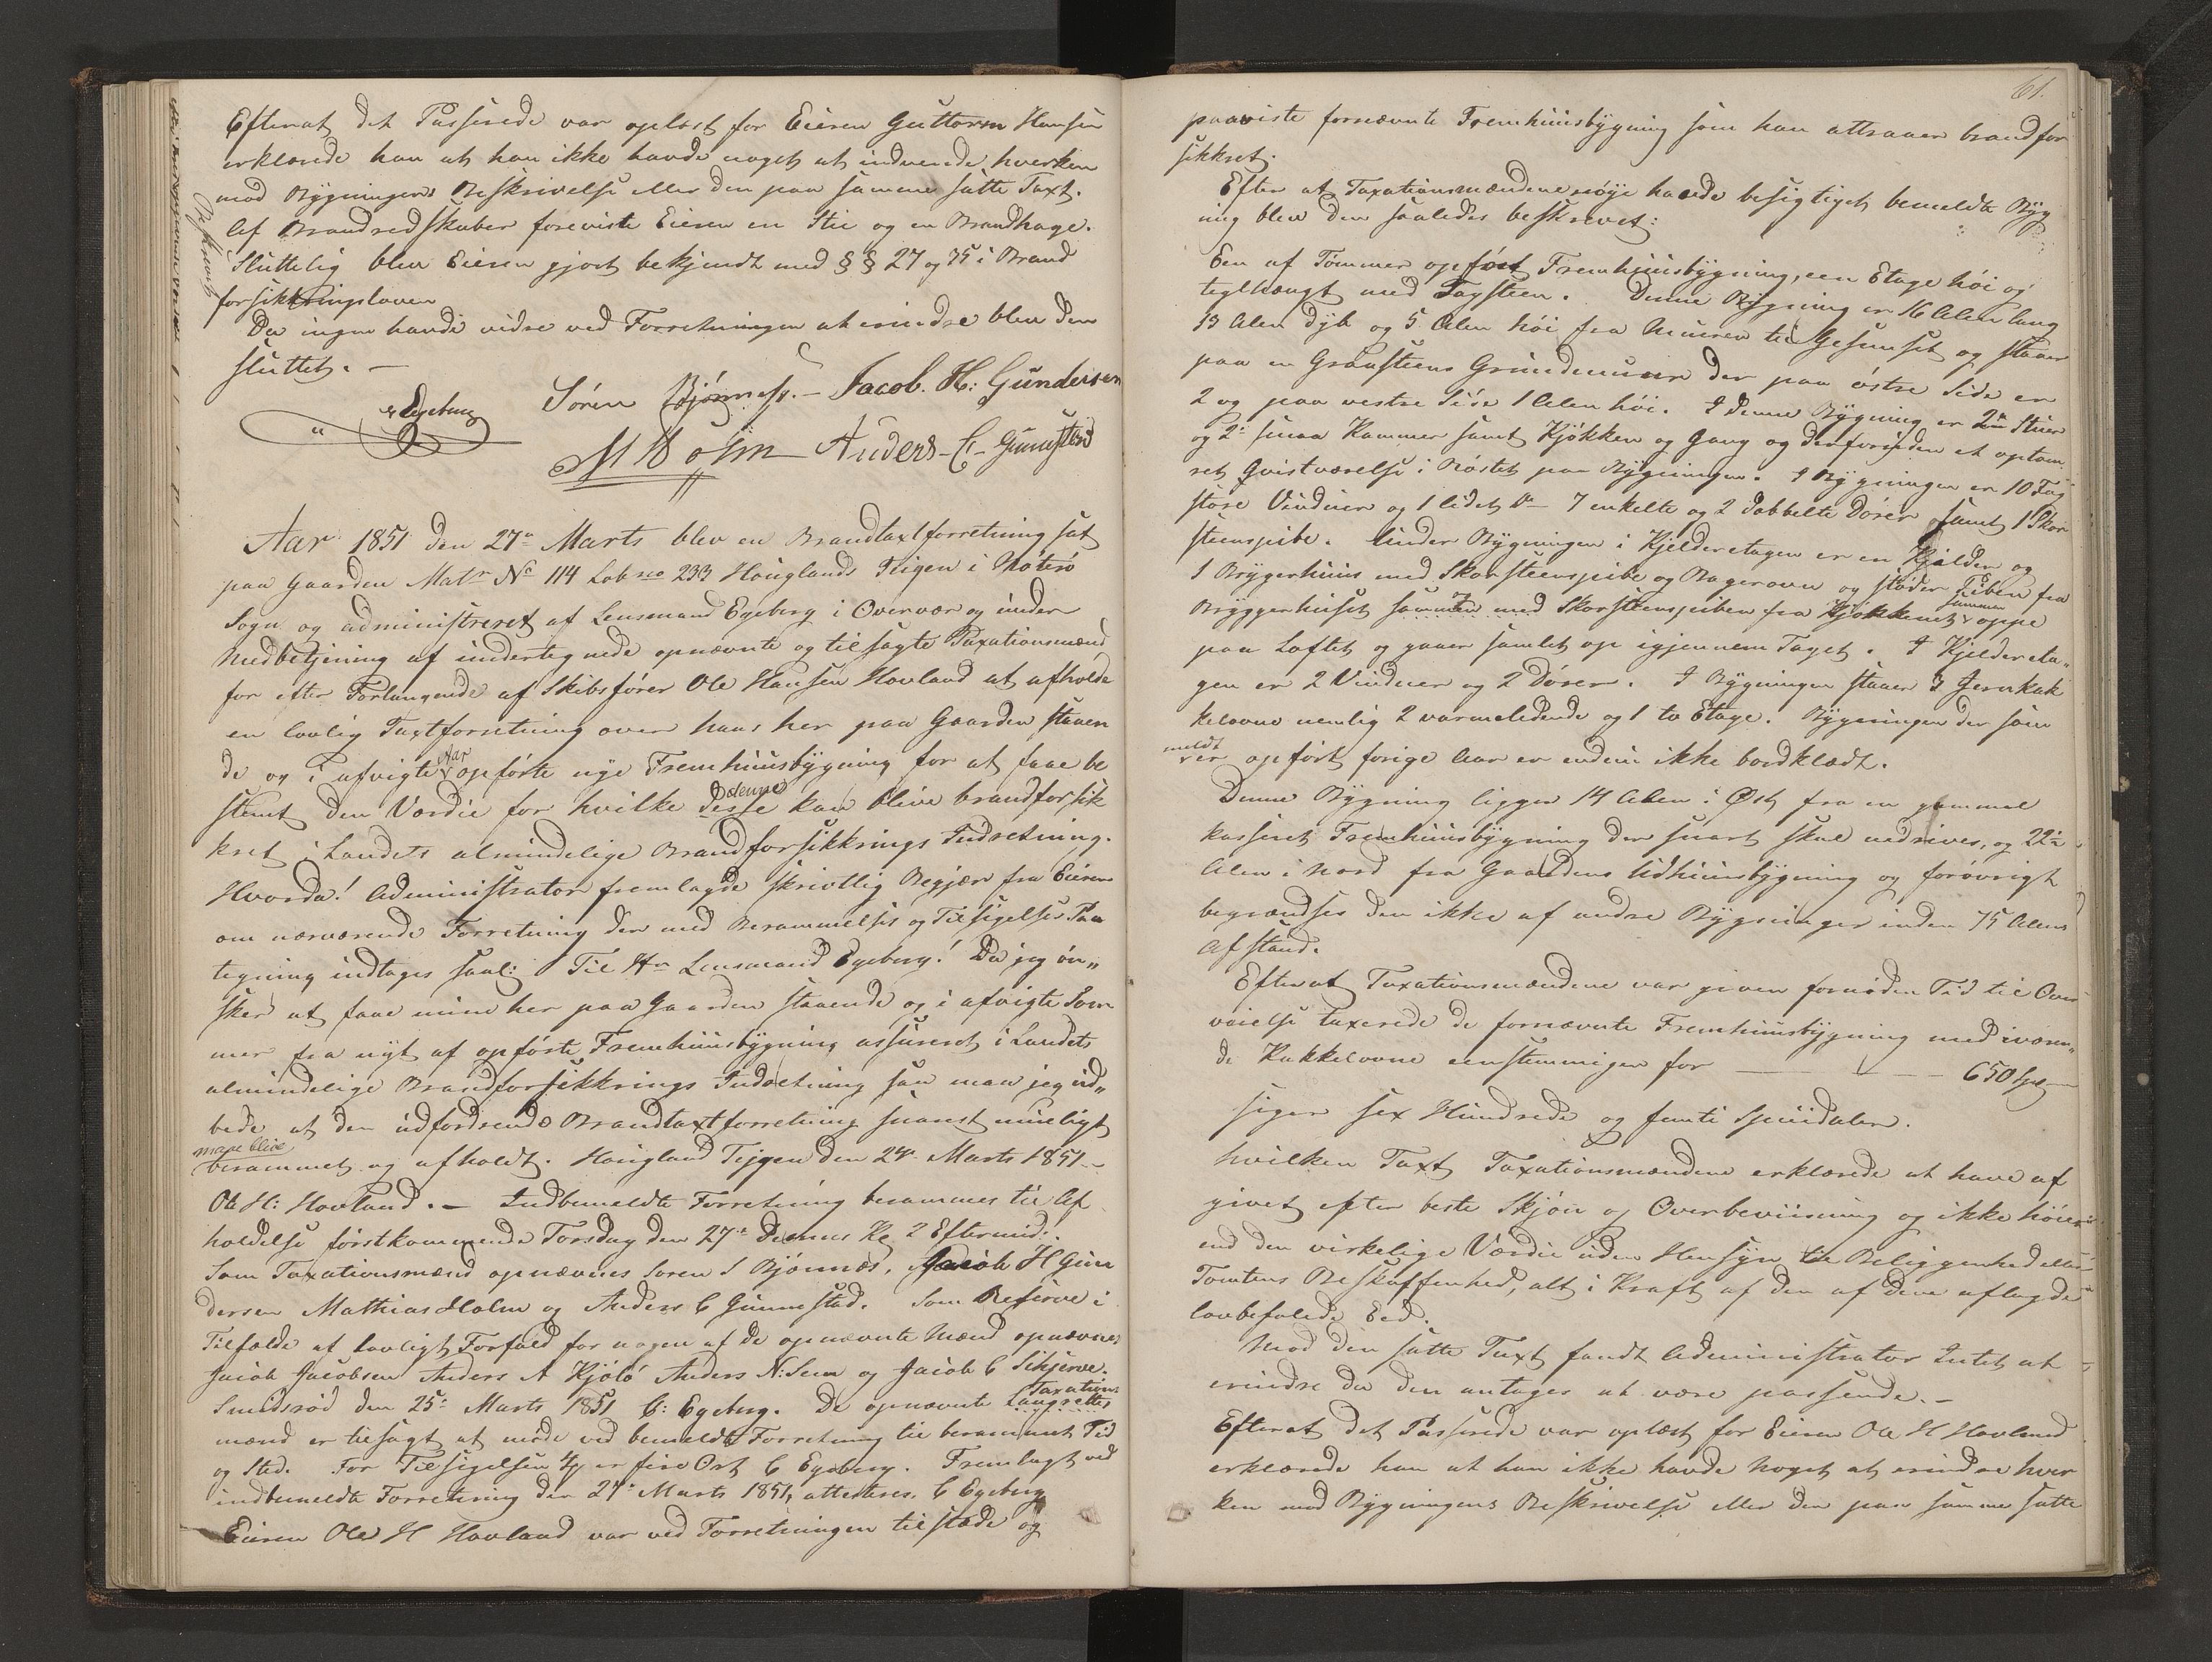 Efterat det Passerede var oplæst for Eieren Guttorm Hansen
erklærede han at han ikke havde noget at indvende hverken
mod Bygningens Beskrivelse eller den paa samme satte Taxt.
Af Brandredskaber foreviste Eieren en Stie og en Brandhage.
Sluttelig blev Eieren gjort bekjendt med § § 27 og 35 i Brand
forsikkringsloven
Da ingen havde vidre ved Forretningen at erindre blev den
sluttet. —
Egeberg Sören Bjönness. — Jacob. H: Gundersen
M Holm Anders C. Gunnestad
Aar 1851 den 27de Marts blev en Brandtaxtforretning sat
paa Gaarden Matr No 114 Løbno 233 Houglands Teigen i Nöterö
Sogn og administreret af Lensmand Egeberg i Overvær og under
Medbetjening af undertegnede opnævnte og tilsagte Taxationsmænd
for efter Forlangende af Skibsförer Ole Hansen Hovland at afholde
en lovlig Taxtforretning over hans her paa Gaarden staaen
de og i afvigte Aar opförte nye Fremhuusbygning for at faae be
stemt den Værdie for hvilke disse denne kan blive brandforsik
kret i Landets almindelige Brandforsikkrings Indretning.
Hvorda! Administrator fremlagde skrivtlig Begjær fra Eieren
om nærværende Forretning der med Berammelses og Tilsigelses Paa
tegning indtages saal: Til Hr Lensmand Egeberg! Da jeg ön„
sker at faae min her paa Gaarden staaende og i afvigte Som
mer fra nyt af opförte Fremhuusbygning assureret i Landets
almindelige Brandforsikkrings Indretning saa maa jeg ud„
bede at den udfordrende Brandtaxtforretning snarest mueligt
maae blive
berammet og afholdt. Hougland Tejgen den 24de Marts 1851 —
Ole H: Hovland. — Indbemeldte Forretning berammes til Af
holdelse förstkommende Torsdag den 27de Dennes Kl 2 Eftermid:
Som Taxationsmænd opnævnes Soren S Bjönnes, Jacob H Gun
dersen Mathias Holm og Anders C Gunnestad. Som Reserve i
Tilfælde af lovligt Forfald for nogen af de opnævnte Mænd opnævnes
Jacob Jacobsen Anders A Kjölö Anders N: Sem og Jacob C Skjerve.
Smidsröd den 25de Marts 1851 C: Egeberg. De opnævnte Laugrettes Taxations
mænd er tilsagt at möde ved bemeldte Forretning til berammet Tid
og Sted. For Tilsigelsen er fire Ort C Egeberg. Fremlagt ved
indbemeldte Forretning den 27de Marts 1851, attesteres. C Egeberg
Eieren Ole H Hovland var ved Forretningen tilstæde og
61.
paaviste fornævnte Fremhuusbygning som han attraaer brandfor
sikkret.
Efter at Taxationsmændene nöye havde besigtiget bemeldte Byg
ning blev den saaledes beskrevet:
Een af Tömmer opfört Fremhuusbygning, een Etage höi og
teglhængt med Tagsteen. Denne Bygning er 16 Alen lang
13 Alen dyb og 5 Alen höi fra Muuren til Gesimset og staaer
paa en Graasteens Grundmuur der paa östre Side er
2 og paa vestre Side 1 Alen höi. I denne Bygning er 2de Stuer
og 2de smaa Kammer samt Kjökken og Gang og derforuden et optöm
ret Qvistværelse i Röstet paa Bygningen. I Bygningen er 10 Fag
store Vinduer og 1 lidet do 7 enkelte og 2 dobbelte Dörer samt 1 Skor
steenspibe. Under Bygningen i Kjelderetagen er en Kjelder og
1 Bryggerhuus med Skorsteenspibe og Bagerovn og stöder Piben fra
Bryggerhuset sammen med Skorsteenspiben fra Kjökkenet sammen oppe
paa Loftet og gaaer samlet op igjennem Taget. I Kjeldereta„
gen er 2 Vinduer og 2 Dörer. I Bygningen staaer 3 Jernkak
kelovne nemlig 2 varmeledende og 1 to Etage. Bygningen der som
meldt
er opfört forige Aar er endnu ikke bordklædt.
Denne Bygning ligger 14 Alen i Öst fra en gammel
kasseret Fremhuusbygning der snart skal nedrives, og 22de
Alen i Nord fra Gaardens Udhuusbygning og foröyrigt
begrændses den ikke af andre Bygninger inden 75 Alens
Afstand.
Efterat Taxationsmændene var given fornöden Tid til Over
veielse taxerede de fornævnte Fremhuusbygning med iværen„
de Kakkelovne eenstemmigen for — — — 650 Spd
siger sex Hundrede og femti Speciedaler.
Hvilken Taxt Taxationsmændene erklærede at have af
givet efter beste Skjön og Overbeviisning og ikke höiere
end den virkelige Værdie uden Hensyn til Beliggenhed eller
Tomtens Beskaffenhed, alt i Kraft af den af dem aflagde
lovbefalede Eed.
Mod den satte Taxt fandt Administrator Intet at
erindre da den antages at være passende. —
Efterat det Passerede var oplæst for Eieren Ole H Hovland
erklærede han at han ikke havde noget at erindre hver
ken mod Bygningens Beskrivelse eller den paa samme satte